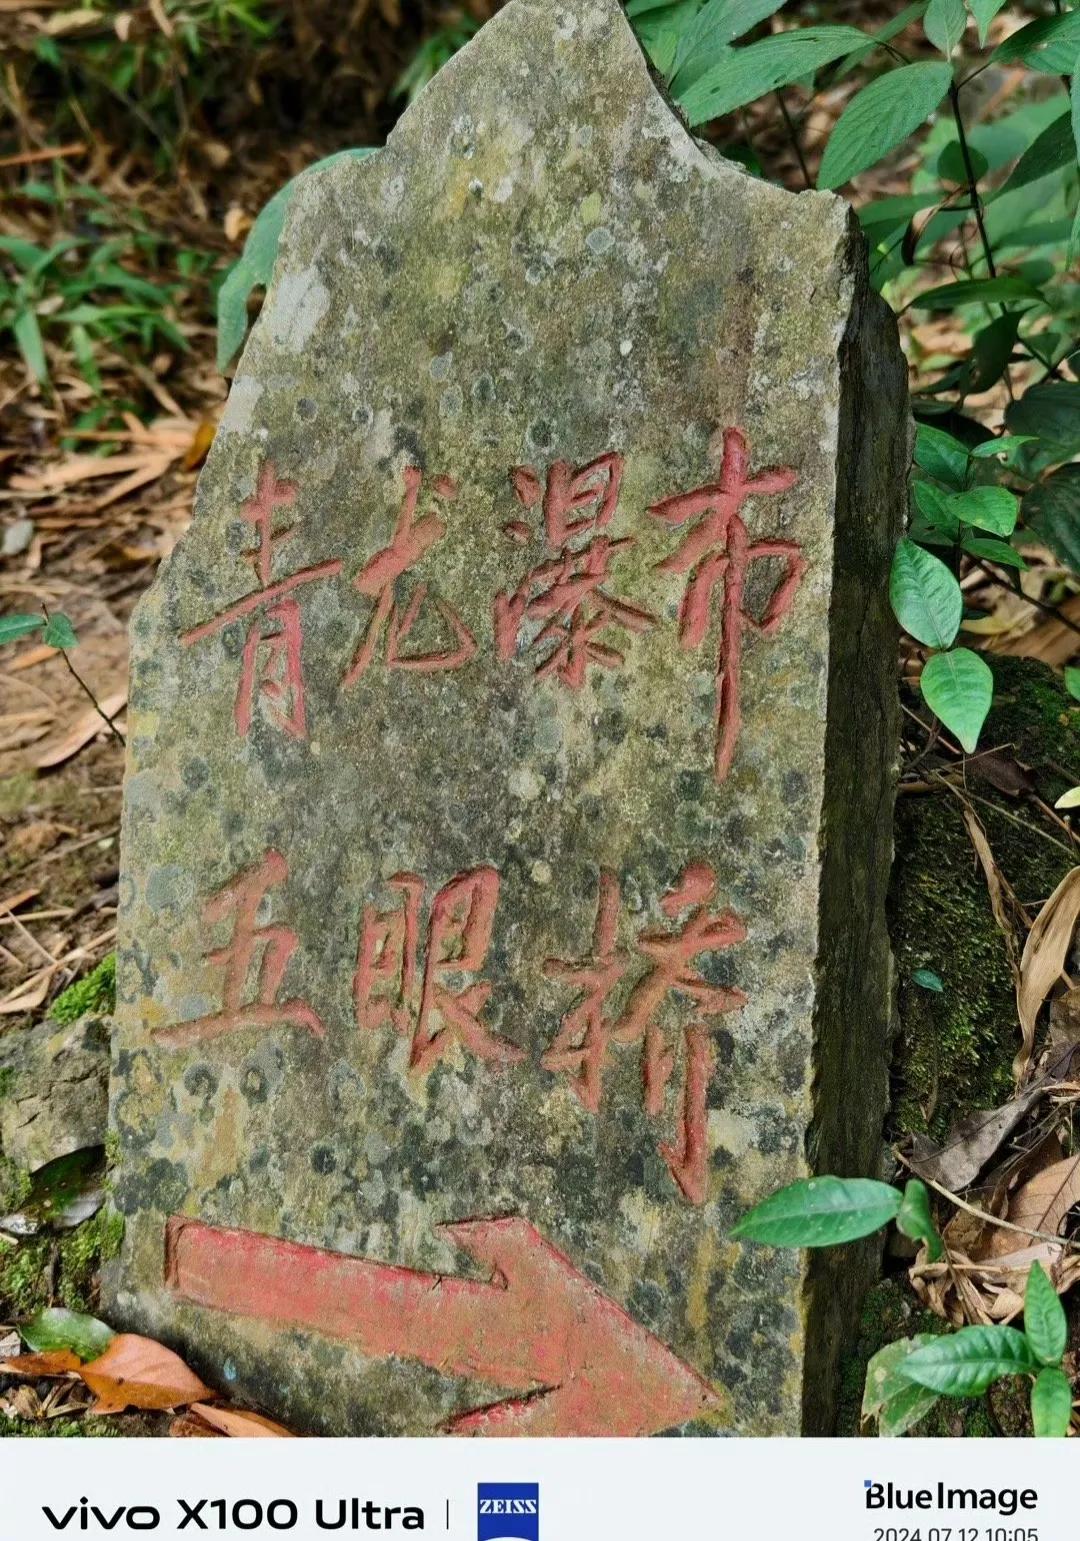 青龙瀑布
五眼桥
vivo X100 Ultra | ZEISS
BlueImage
2024.07.12 10:05